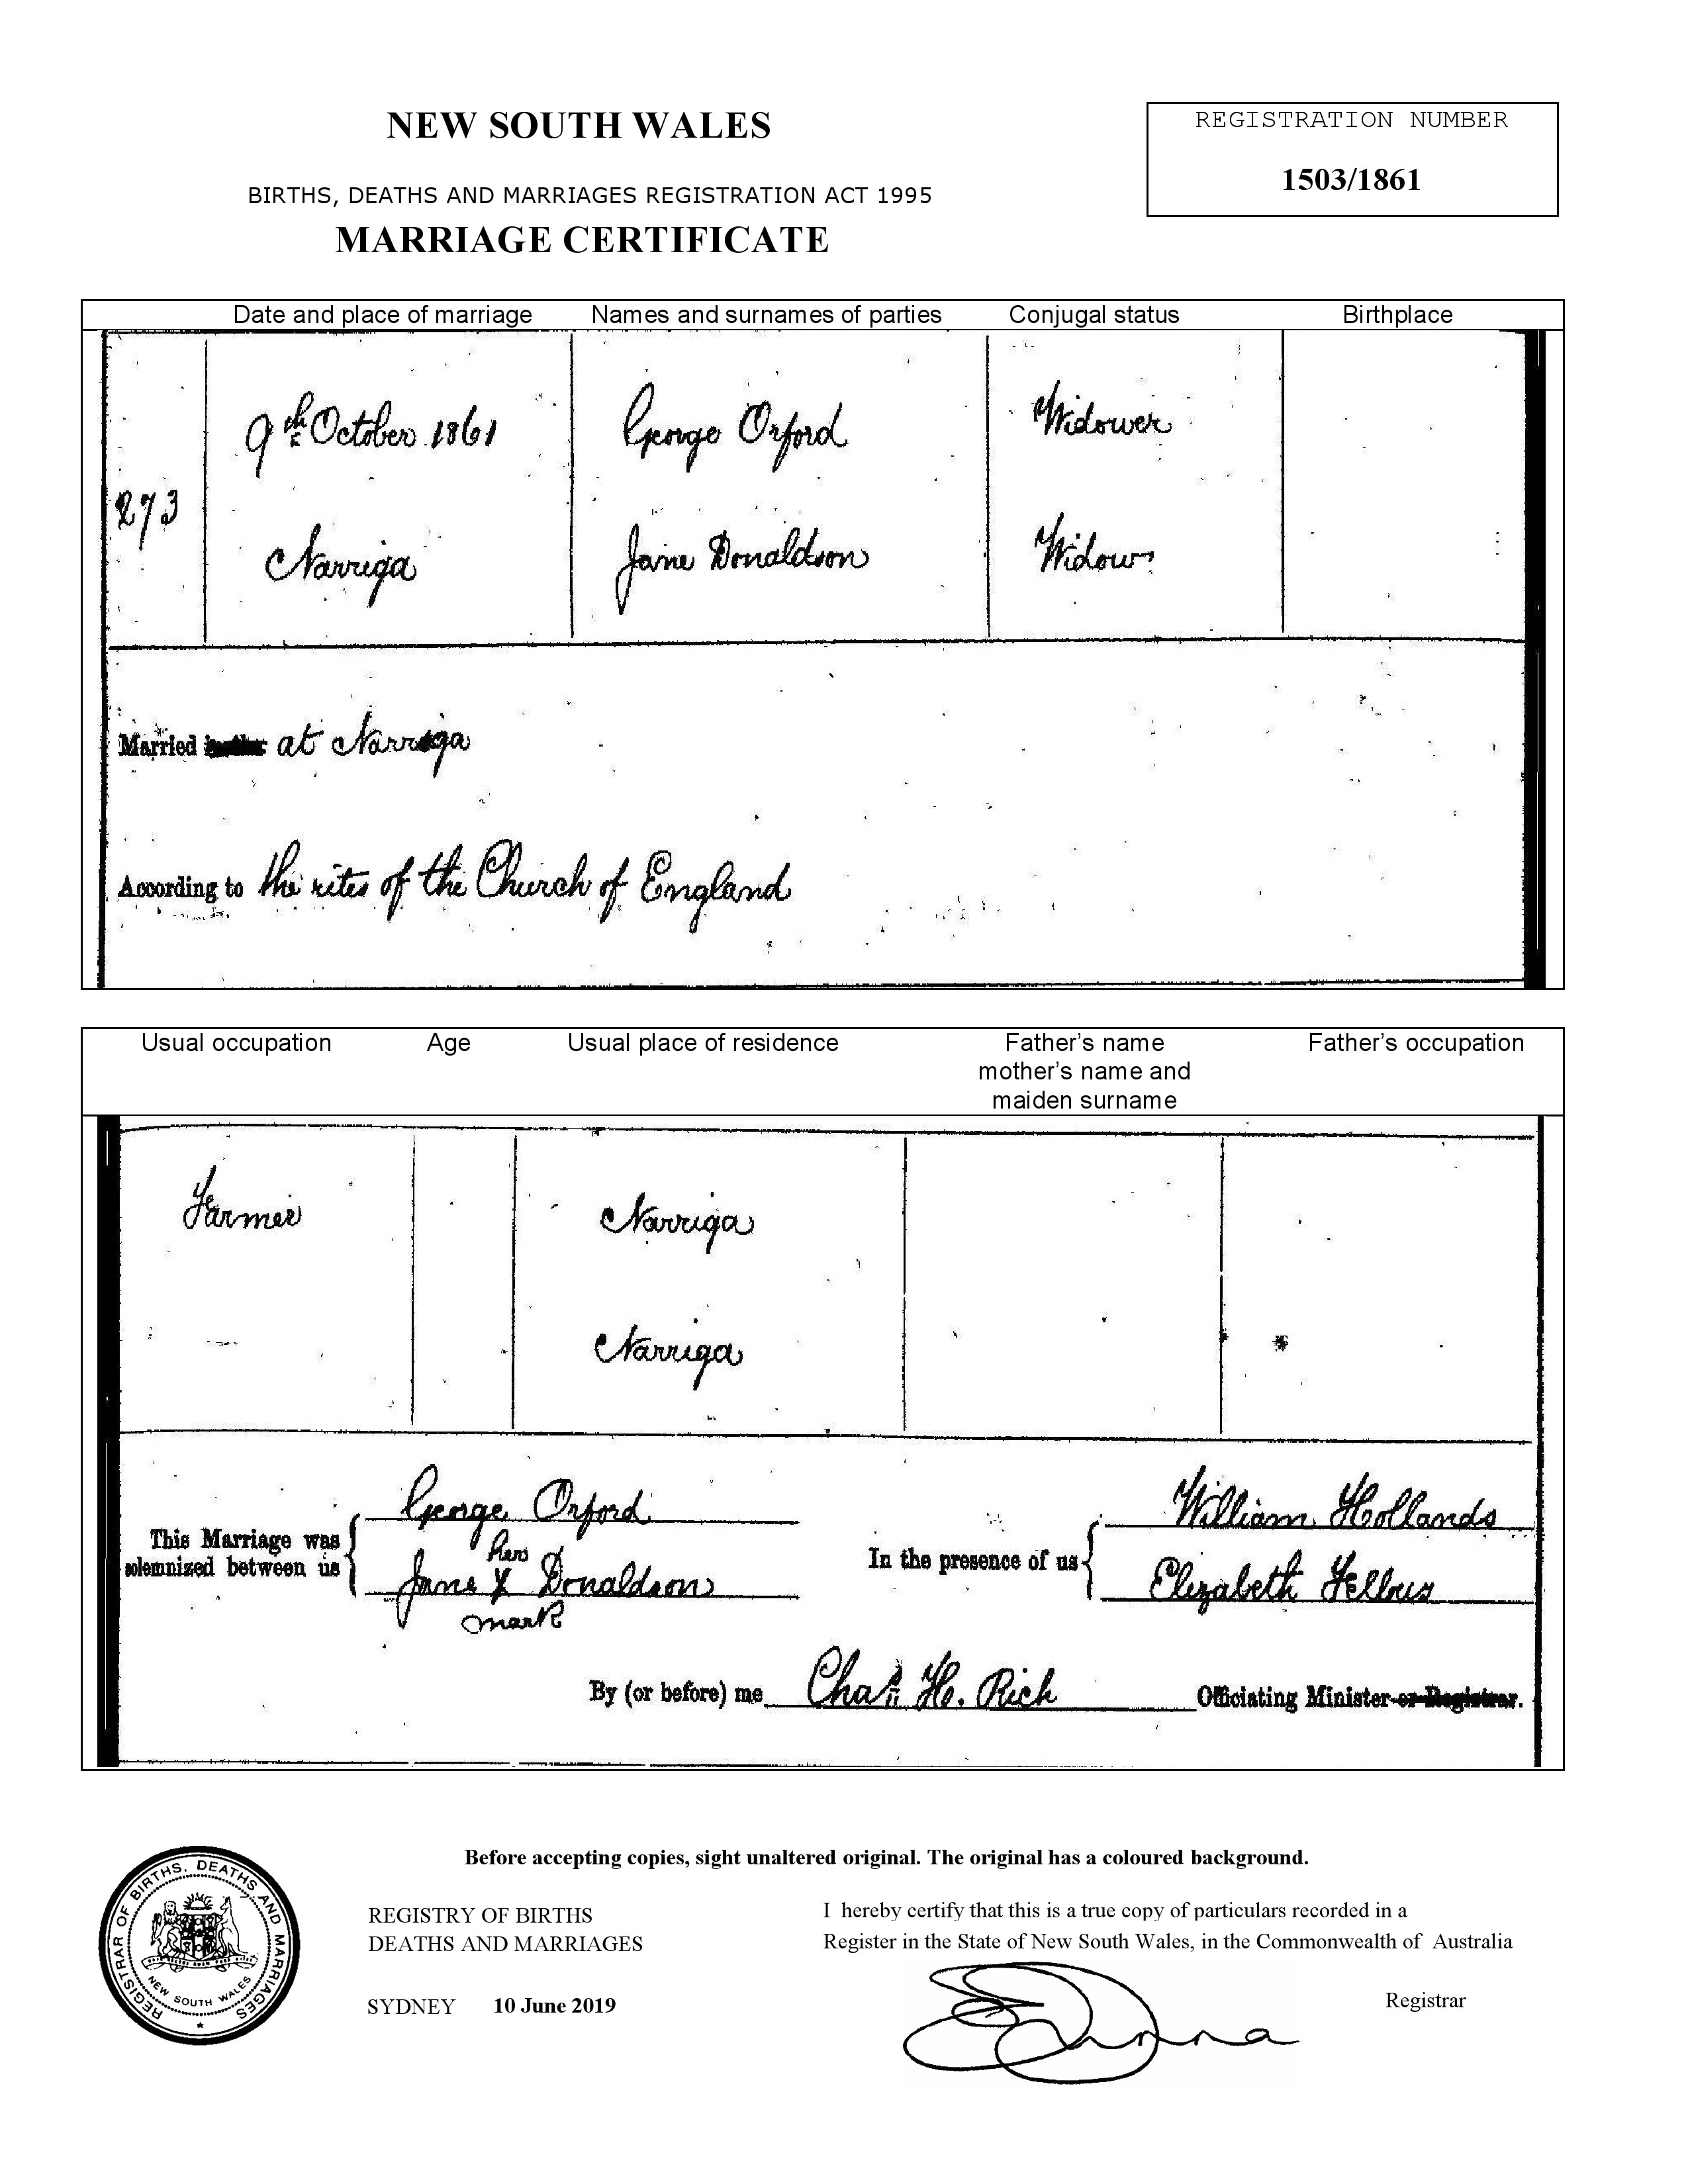 NEW SOUTH WALES
REGISTRATION NUMBER
1503/1861
BIRTHS, DEATHS AND MARRIAGES REGISTRATION ACT 1995
MARRIAGE CERTIFICATE
Date and place of marriage Names and surnames of parties Conjugal status Birthplace
9th October 1861 George Orford Widower
273
Narriga Jane Donaldson Widow
Married at Narriga
According to the rites of the Church of England
Usual occupation Age Usual place of residence Father's name Father's occupation
mother's name and
maiden surname
Farmer Narriga
Narriga
This Marriage was solemnized between us
George Orford
her
Jane X Donaldson
mark
In the presence of us
William Hollands
Elizabeth
By (or before) me Chas. H. Rich Officiating Minister or Registrar.
Before accepting copies, sight unaltered original. The original has a coloured background.
REGISTRAR OF BIRTHS, DEATHS AND MARRIAGES
NEW SOUTH WALES
REGISTRY OF BIRTHS
DEATHS AND MARRIAGES
SYDNEY 10 June 2019
I hereby certify that this is a true copy of particulars recorded in a
Register in the State of New South Wales, in the Commonwealth of Australia
Registrar